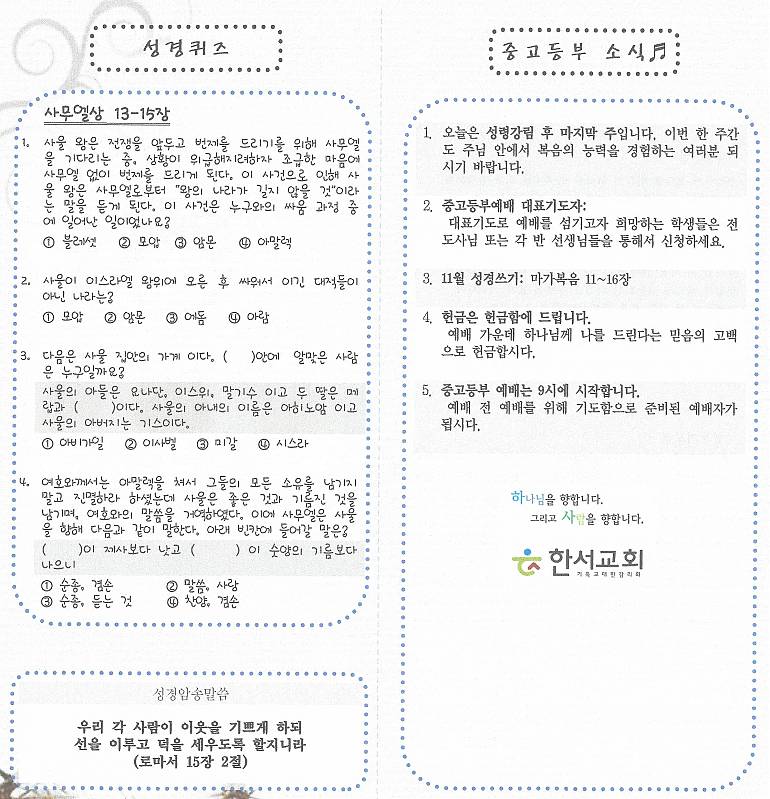 성경퀴즈
사무엘상 13-15장
1. 사울 왕은 전쟁을 앞두고 번제를 드리기를 위해 사무엘
을 기다리는 중, 상황이 위급해지려하자 조급한 마음에
사무엘 없이 번제를 드리게 된다. 이 사건으로 인해 사
울 왕은 사무엘로부터 "왕의 나라가 길지 않을 것"이라
는 말을 듣게 된다. 이 사건은 누구와의 싸움 과정 중
에 일어난 일이었나요?
① 블레셋 ② 모압 ③ 암몬 ④ 아말렉
2. 사울이 이스라엘 왕위에 오른 후 싸워서 이긴 대적들이
아닌 나라는?
① 모압 ② 암몬 ③ 에돔 ④ 아람
3. 다음은 사울 집안의 가계 이다. ( )안에 알맞은 사람
은 누구일까요?
사울의 아들은 요나단, 이스위, 말기수 이고 두 딸은 메
랍과 ( )이다. 사울의 아내의 이름은 아히노암 이고
사울의 아버지는 기스이다.
① 아비가일 ② 이사벨 ③ 미갈 ④ 시스라
4. 여호와께서는 아말렉을 쳐서 그들의 모든 소유를 남기지
말고 진멸하라 하셨는데 사울은 좋은 것과 기름진 것을
남기며, 여호와의 말씀을 거역하였다. 이에 사무엘은 사울
을 향해 다음과 같이 말한다. 아래 빈칸에 들어갈 말은?
( )이 제사보다 낫고 ( ) 이 숫양의 기름보다
나으니
① 순종, 겸손 ② 말씀, 사랑
③ 순종, 듣는 것 ④ 찬양, 겸손
성경암송말씀
우리 각 사람이 이웃을 기쁘게 하되
선을 이루고 덕을 세우도록 할지니라
(로마서 15장 2절)
중고등부 소식♬
1. 오늘은 성령강림 후 마지막 주입니다. 이번 한 주간
도 주님 안에서 복음의 능력을 경험하는 여러분 되
시기 바랍니다.
2. 중고등부예배 대표기도자:
대표기도로 예배를 섬기고자 희망하는 학생들은 전
도사님 또는 각 반 선생님들을 통해서 신청하세요.
3. 11월 성경쓰기: 마가복음 11~16장
4. 헌금은 헌금함에 드립니다.
예배 가운데 하나님께 나를 드린다는 믿음의 고백
으로 헌금합시다.
5. 중고등부 예배는 9시에 시작합니다.
예배 전 예배를 위해 기도함으로 준비된 예배자가
됩시다.
하나님을 향합니다.
그리고 사람을 향합니다.
한서교회
기독교대한감리회